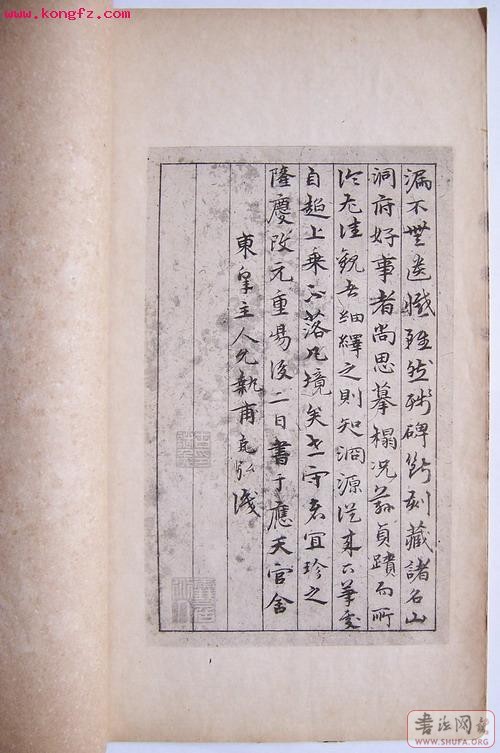 www.kongfz.com
漏不無遺憾雖然殘碑斷刻藏諸名山
洞府好事者尚思摹榻况茲真蹟而所
佳觀者細繹之則知淵源從來下筆處
自超上乘不落凡境矣世守者宜珍之
隆慶改元重陽後二日書于應天官舍
東皋主人允執甫
书法网
WWW.SHUFA.ORG